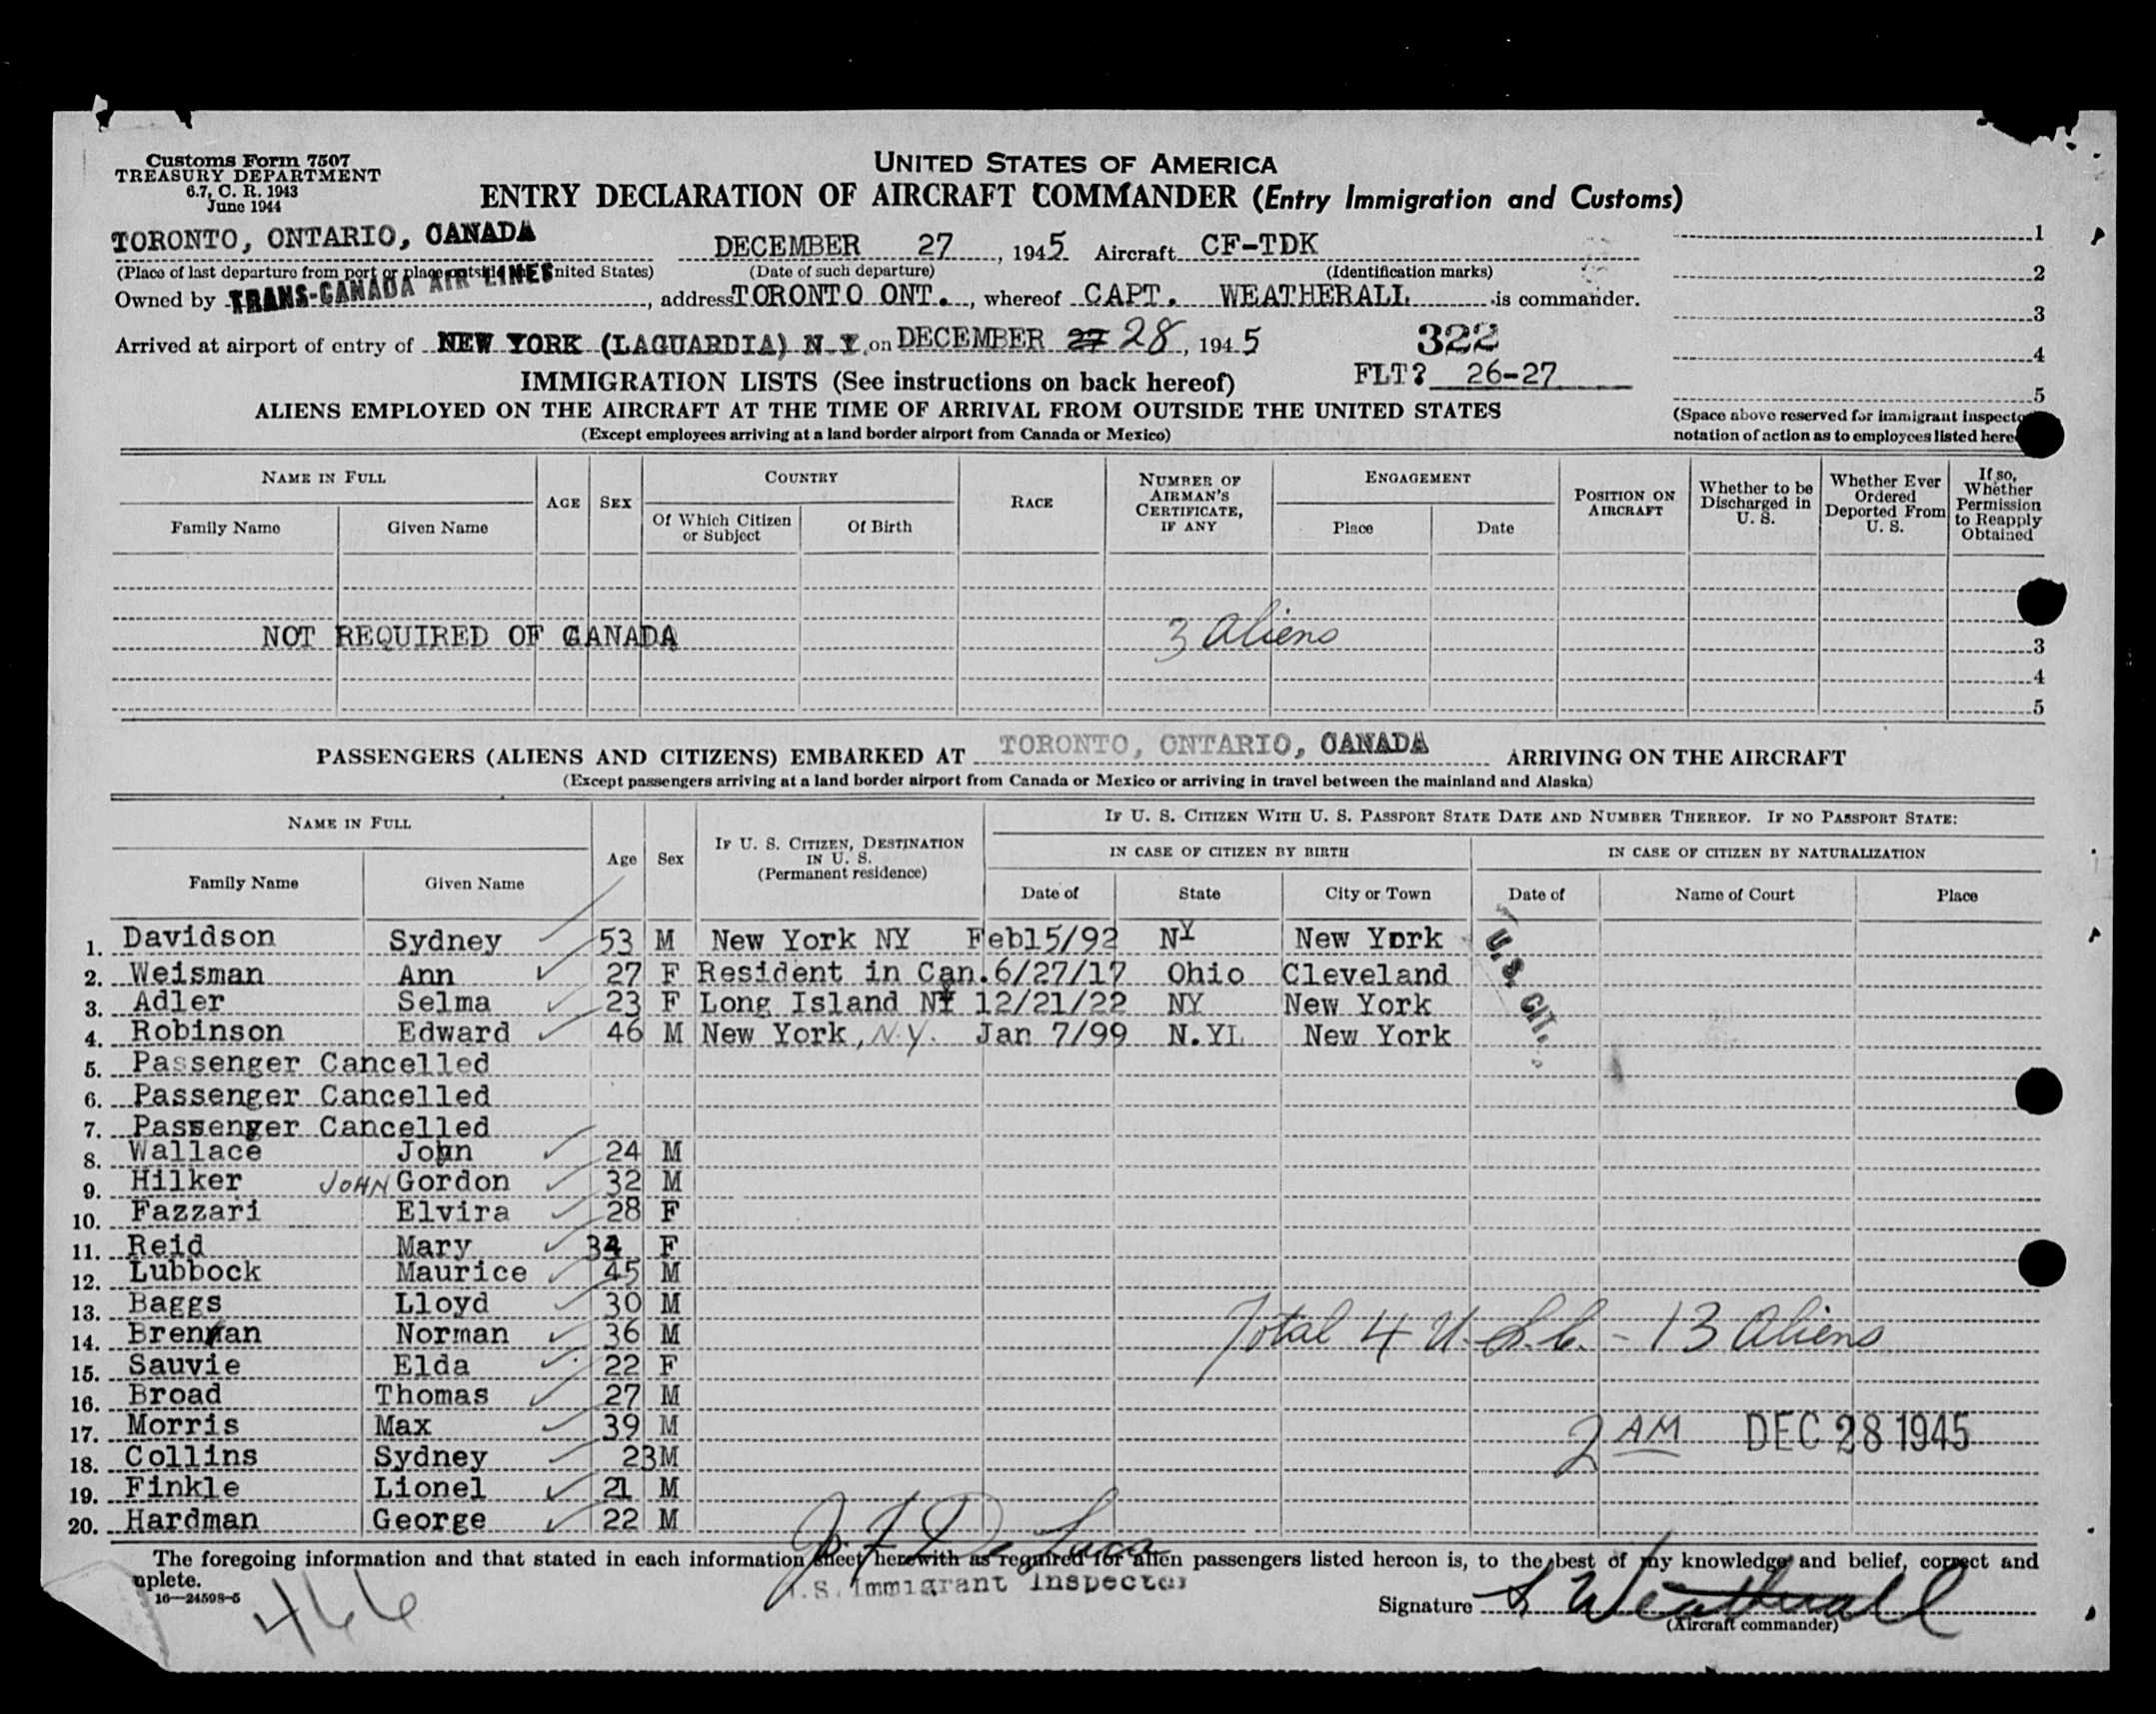 Customs Form 7507
TREASURY DEPARTMENT
6.7, C. R. 1943
June 1944
UNITED STATES OF AMERICA
ENTRY DECLARATION OF AIRCRAFT COMMANDER (Entry Immigration and Customs)
TORONTO, ONTARIO, CANADA DECEMBER 27, 1945 Aircraft CF-TDK 1
(Place of last departure from port or place outside United States) (Date of such departure) (Identification marks) 2
Owned by TRANS-CANADA AIR LINES, address TORONTO ONT., whereof CAPT. WEATHERALL is commander. 3
Arrived at airport of entry of NEW YORK (LAGUARDIA) N Y. on DECEMBER 27 28, 1945 322 4
IMMIGRATION LISTS (See instructions on back hereof) FLT? 26-27 5
ALIENS EMPLOYED ON THE AIRCRAFT AT THE TIME OF ARRIVAL FROM OUTSIDE THE UNITED STATES
(Except employees arriving at a land border airport from Canada or Mexico)
(Space above reserved for immigrant inspecto
notation of action as to employees listed here
NAME IN FULL AGE SEX COUNTRY RACE NUMBER OF AIRMAN'S CERTIFICATE, IF ANY ENGAGEMENT POSITION ON AIRCRAFT Whether to be Discharged in U. S. Whether Ever Ordered Deported From U. S. If so, Whether Permission to Reapply Obtained
Family Name Given Name Of Which Citizen or Subject Of Birth Place Date
NOT REQUIRED OF CANADA 3 Aliens 3
4
5
PASSENGERS (ALIENS AND CITIZENS) EMBARKED AT TORONTO, ONTARIO, CANADA ARRIVING ON THE AIRCRAFT
(Except passengers arriving at a land border airport from Canada or Mexico or arriving in travel between the mainland and Alaska)
NAME IN FULL Age Sex IF U. S. CITIZEN, DESTINATION IN U. S. (Permanent residence) IF U. S. CITIZEN WITH U. S. PASSPORT STATE DATE AND NUMBER THEREOF. IF NO PASSPORT STATE:
IN CASE OF CITIZEN BY BIRTH IN CASE OF CITIZEN BY NATURALIZATION
Family Name Given Name Date of State City or Town Date of Name of Court Place
1. Davidson Sydney 53 M New York NY Feb15/92 NY New York
2. Weisman Ann 27 F Resident in Can. 6/27/17 Ohio Cleveland
3. Adler Selma 23 F Long Island NY 12/21/22 NY New York
4. Robinson Edward 46 M New York, N.Y. Jan 7/99 N.YL New York
U.S. CIT.
5. Passenger Cancelled
6. Passenger Cancelled
7. Passenger Cancelled
8. Wallace John 24 M
9. Hilker JOHN Gordon 32 M
10. Fazzari Elvira 28 F
11. Reid Mary 34 F
12. Lubbock Maurice 45 M
13. Baggs Lloyd 30 M
14. Brennan Norman 36 M Total 4 U.S.C. - 13 Aliens
15. Sauvie Elda 22 F
16. Broad Thomas 27 M
17. Morris Max 39 M 2 AM DEC 28 1945
18. Collins Sydney 23 M
19. Finkle Lionel 21 M
20. Hardman George 22 M
J F De Luca
The foregoing information and that stated in each information sheet herewith as required for alien passengers listed hereon is, to the best of my knowledge and belief, correct and
mplete.
U.S. Immigrant Inspector
16—24598-5
466
Signature L Weatherall
(Aircraft commander)